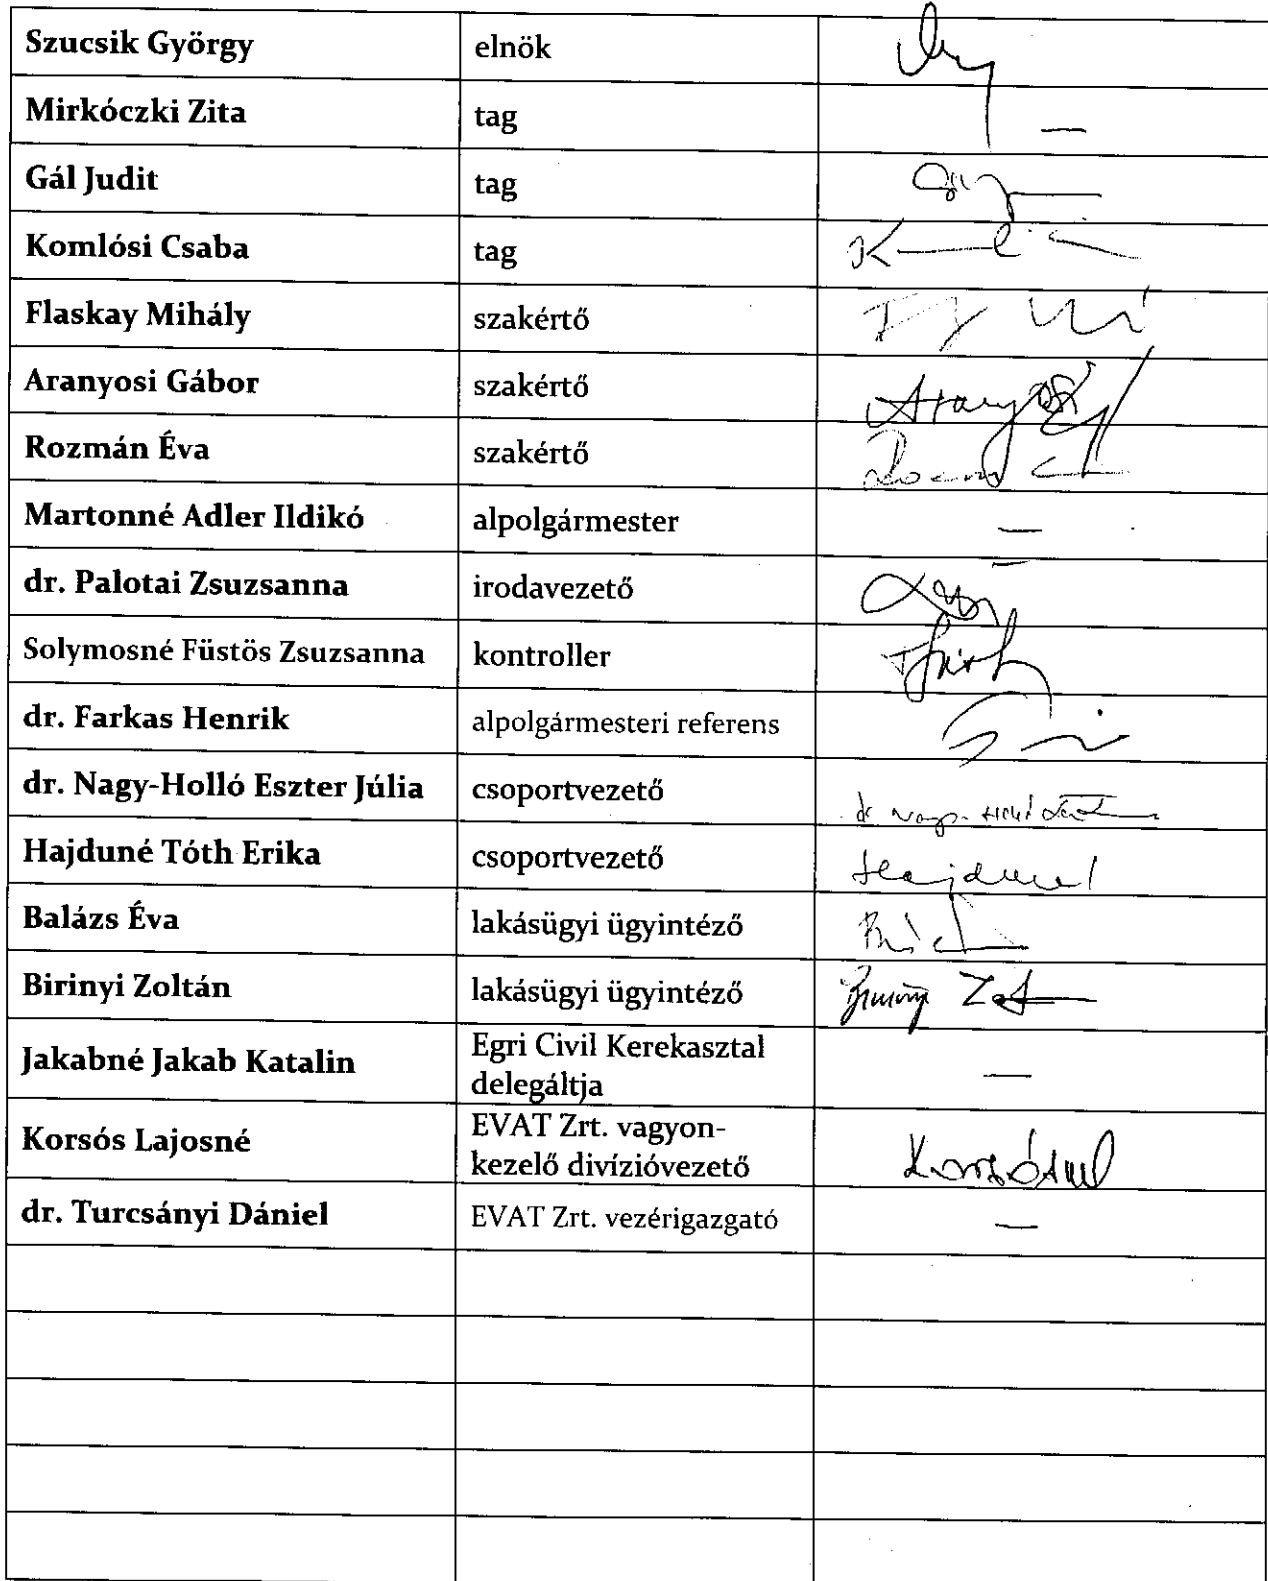 Szucsik György elnök
Mirkóczki Zita tag —
Gál Judit tag
Komlósi Csaba tag
Flaskay Mihály szakértő
Aranyosi Gábor szakértő
Rozmán Éva szakértő
Martonné Adler Ildikó alpolgármester —
dr. Palotai Zsuzsanna irodavezető
Solymosné Füstös Zsuzsanna kontroller
dr. Farkas Henrik alpolgármesteri referens
dr. Nagy-Holló Eszter Júlia csoportvezető
Hajduné Tóth Erika csoportvezető
Balázs Éva lakásügyi ügyintéző
Birinyi Zoltán lakásügyi ügyintéző
Jakabné Jakab Katalin Egri Civil Kerekasztal
delegáltja —
Korsós Lajosné EVAT Zrt. vagyon-
kezelő divízióvezető
dr. Turcsányi Dániel EVAT Zrt. vezérigazgató —